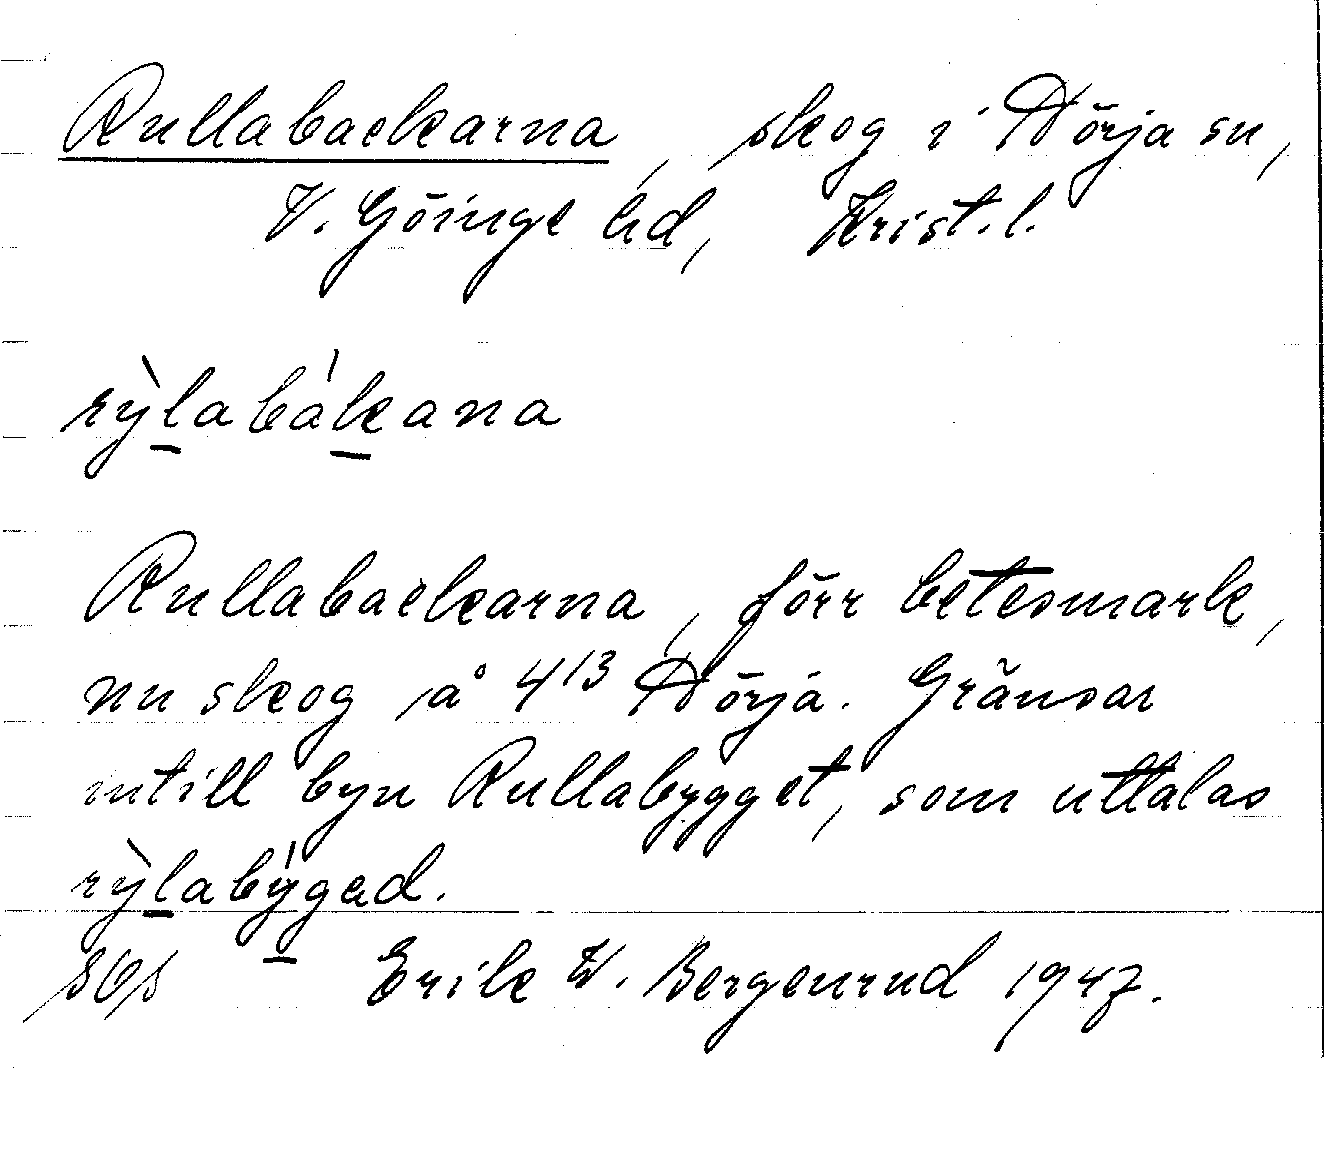 Rullabackarna, skog i Nörja sn,
V. Göinge hd, Krist.l.
rỳlabákana
Rullabackarna, förr betesmark,
nu skog å 4/3 Nörja. Gränsar
intill byn Rullabygget, som uttalas
rỳlabýged.
Erik W. Bergenrud 1947.